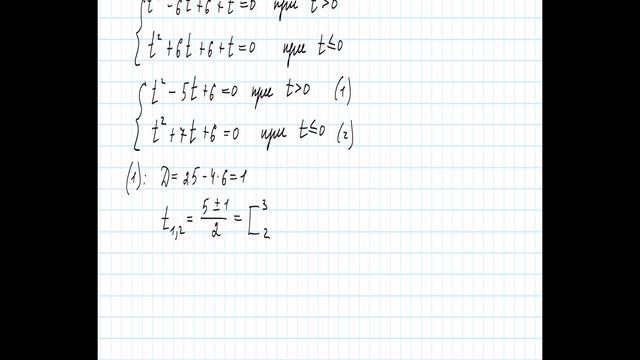 t² - 6t + 6 + t = 0 при t > 0
t² + 6t + 6 + t = 0 при t ≤ 0
t² - 5t + 6 = 0 при t > 0 (1)
t² + 7t + 6 = 0 при t ≤ 0 (2)
(1): D = 25 - 4·6 = 1
t₁,₂ = (5 ± 1)/2 = [ 3
2